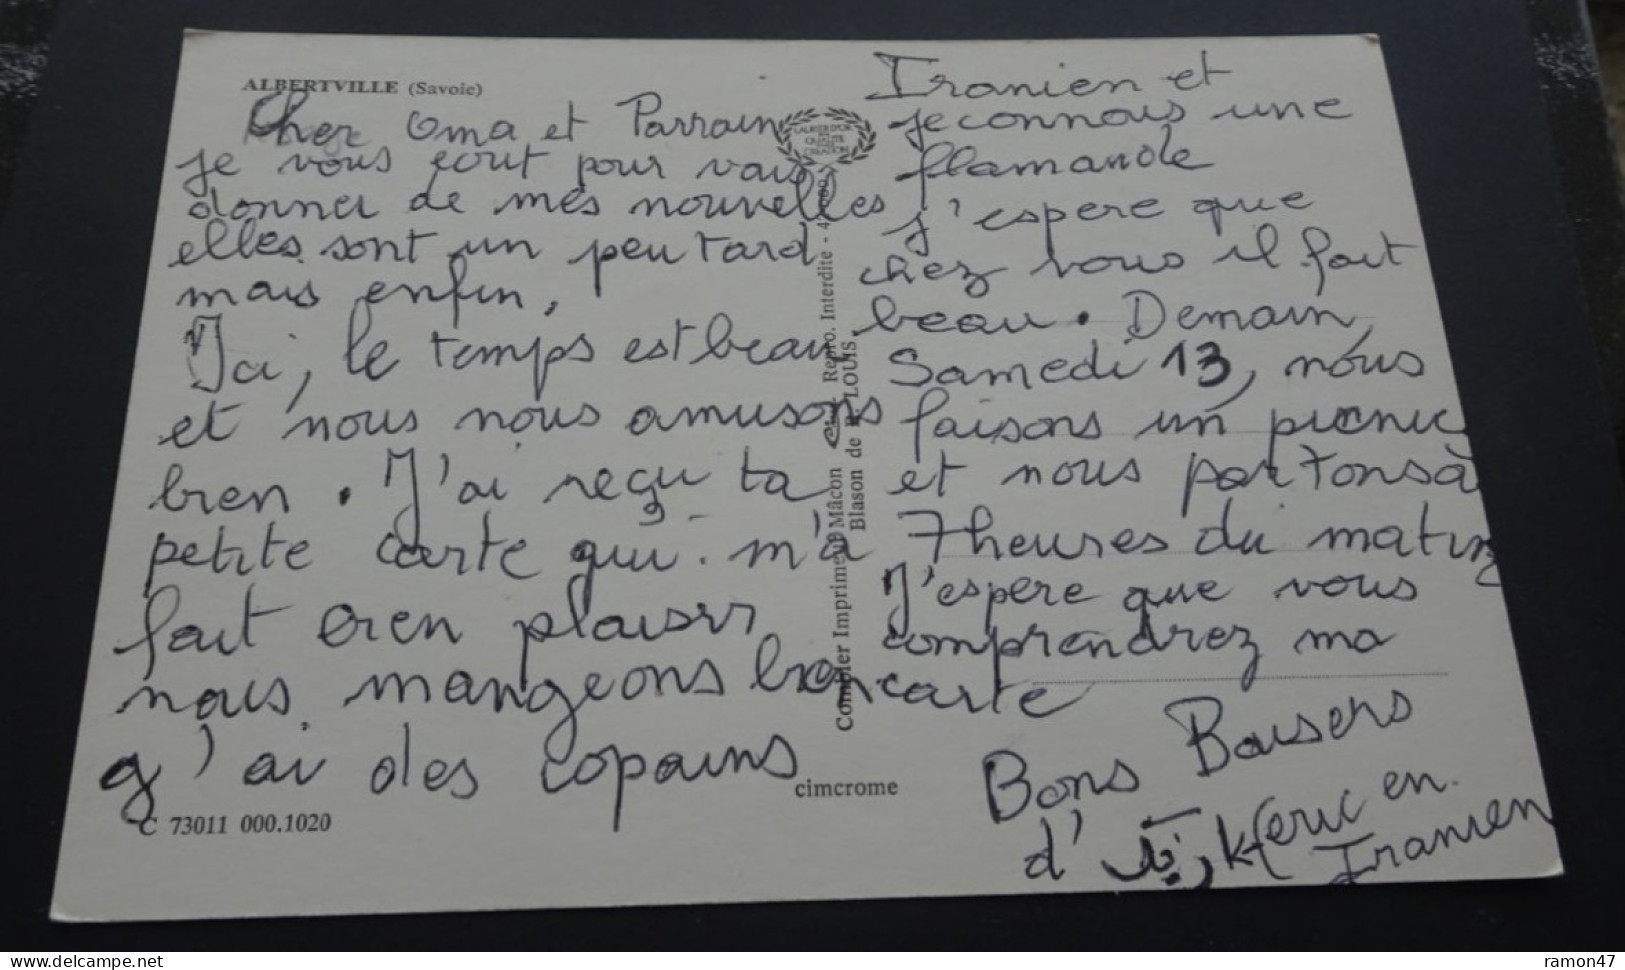 ALBERTVILLE (Savoie)
Cher Oma et Parrain
je vous ecrit pour vous
donner de mes nouvelles
elles sont un peu tard
mais enfin,
Ici, le temps est beau
et nous nous amusons
bien. J'ai reçu ta
petite carte qui m'a
fait bien plaisir
nous mangeons bien
g'ai des copains
C 73011 000.1020
cimcrome
Combier Imprimeur Mâcon Repro. Interdite
Blason de R. LOUIS
Iranien et
je connais une
flamande
j'espere que
chez vous il fait
beau. Demain,
Samedi 13, nous
faisons un picnic
et nous partons à
7 heures du matin
J'espere que vous
comprendrez ma
carte
Bons Baisers
d' eric en
Iranien
delcampe.net
ramon47